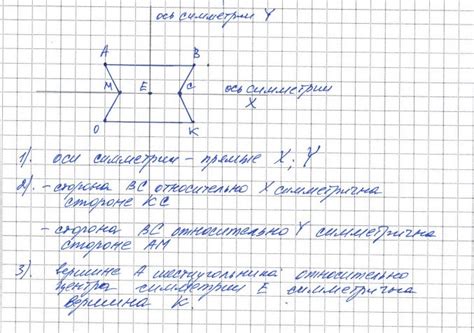 ось симметрии Y
A B
M E C ось симметрии
X
O K
1). оси симметрии - прямые X; Y
2). - сторона BC относительно X симметрична
стороне KC
- сторона BC относительно Y симметрична
стороне AM
3). вершине A шестиугольника относительно
центра симметрии E симметрична
вершина K.